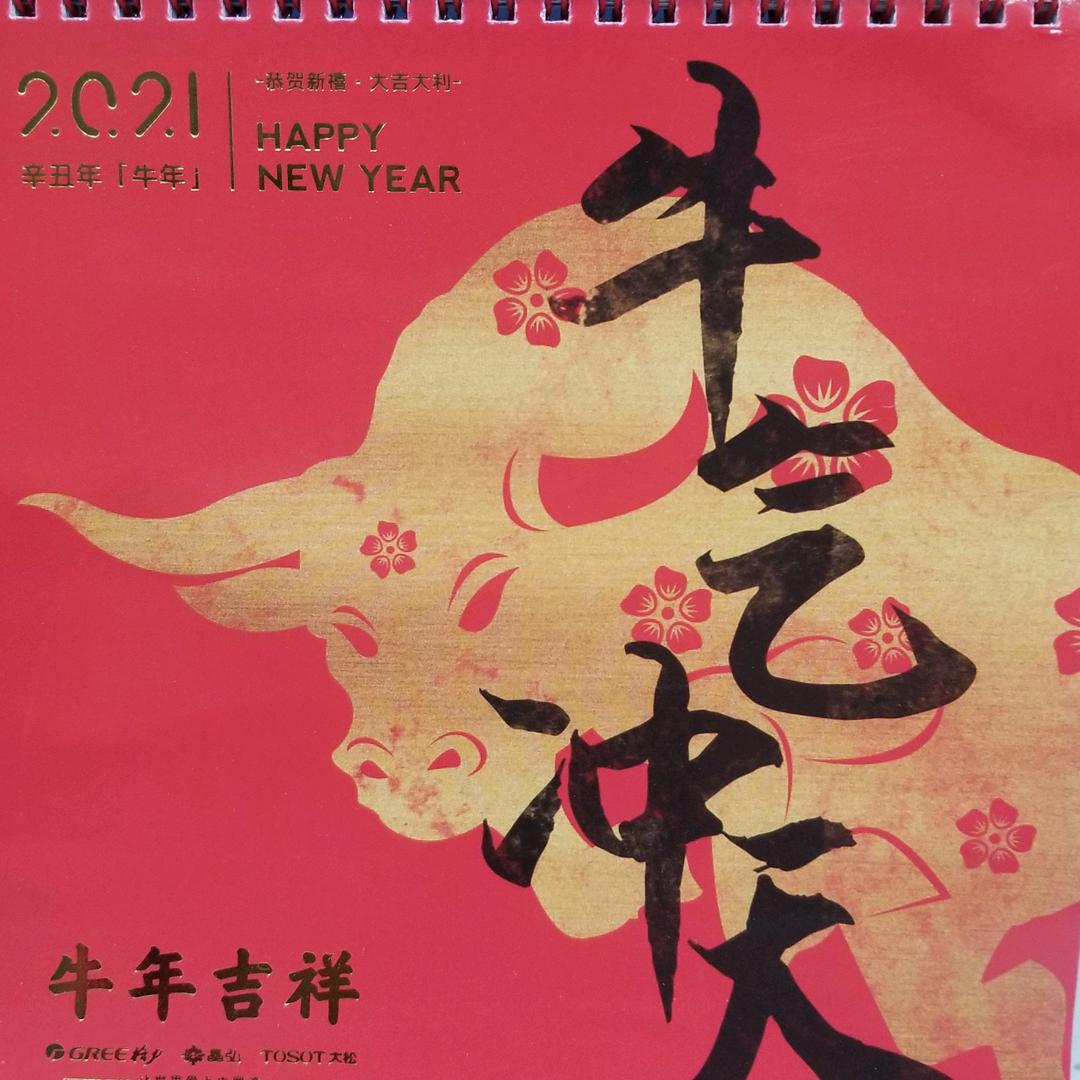 2021
辛丑年「牛年」
-恭贺新禧·大吉大利-
HAPPY
NEW YEAR
牛气冲天
牛年吉祥
GREE格力 晶弘 TOSOT大松